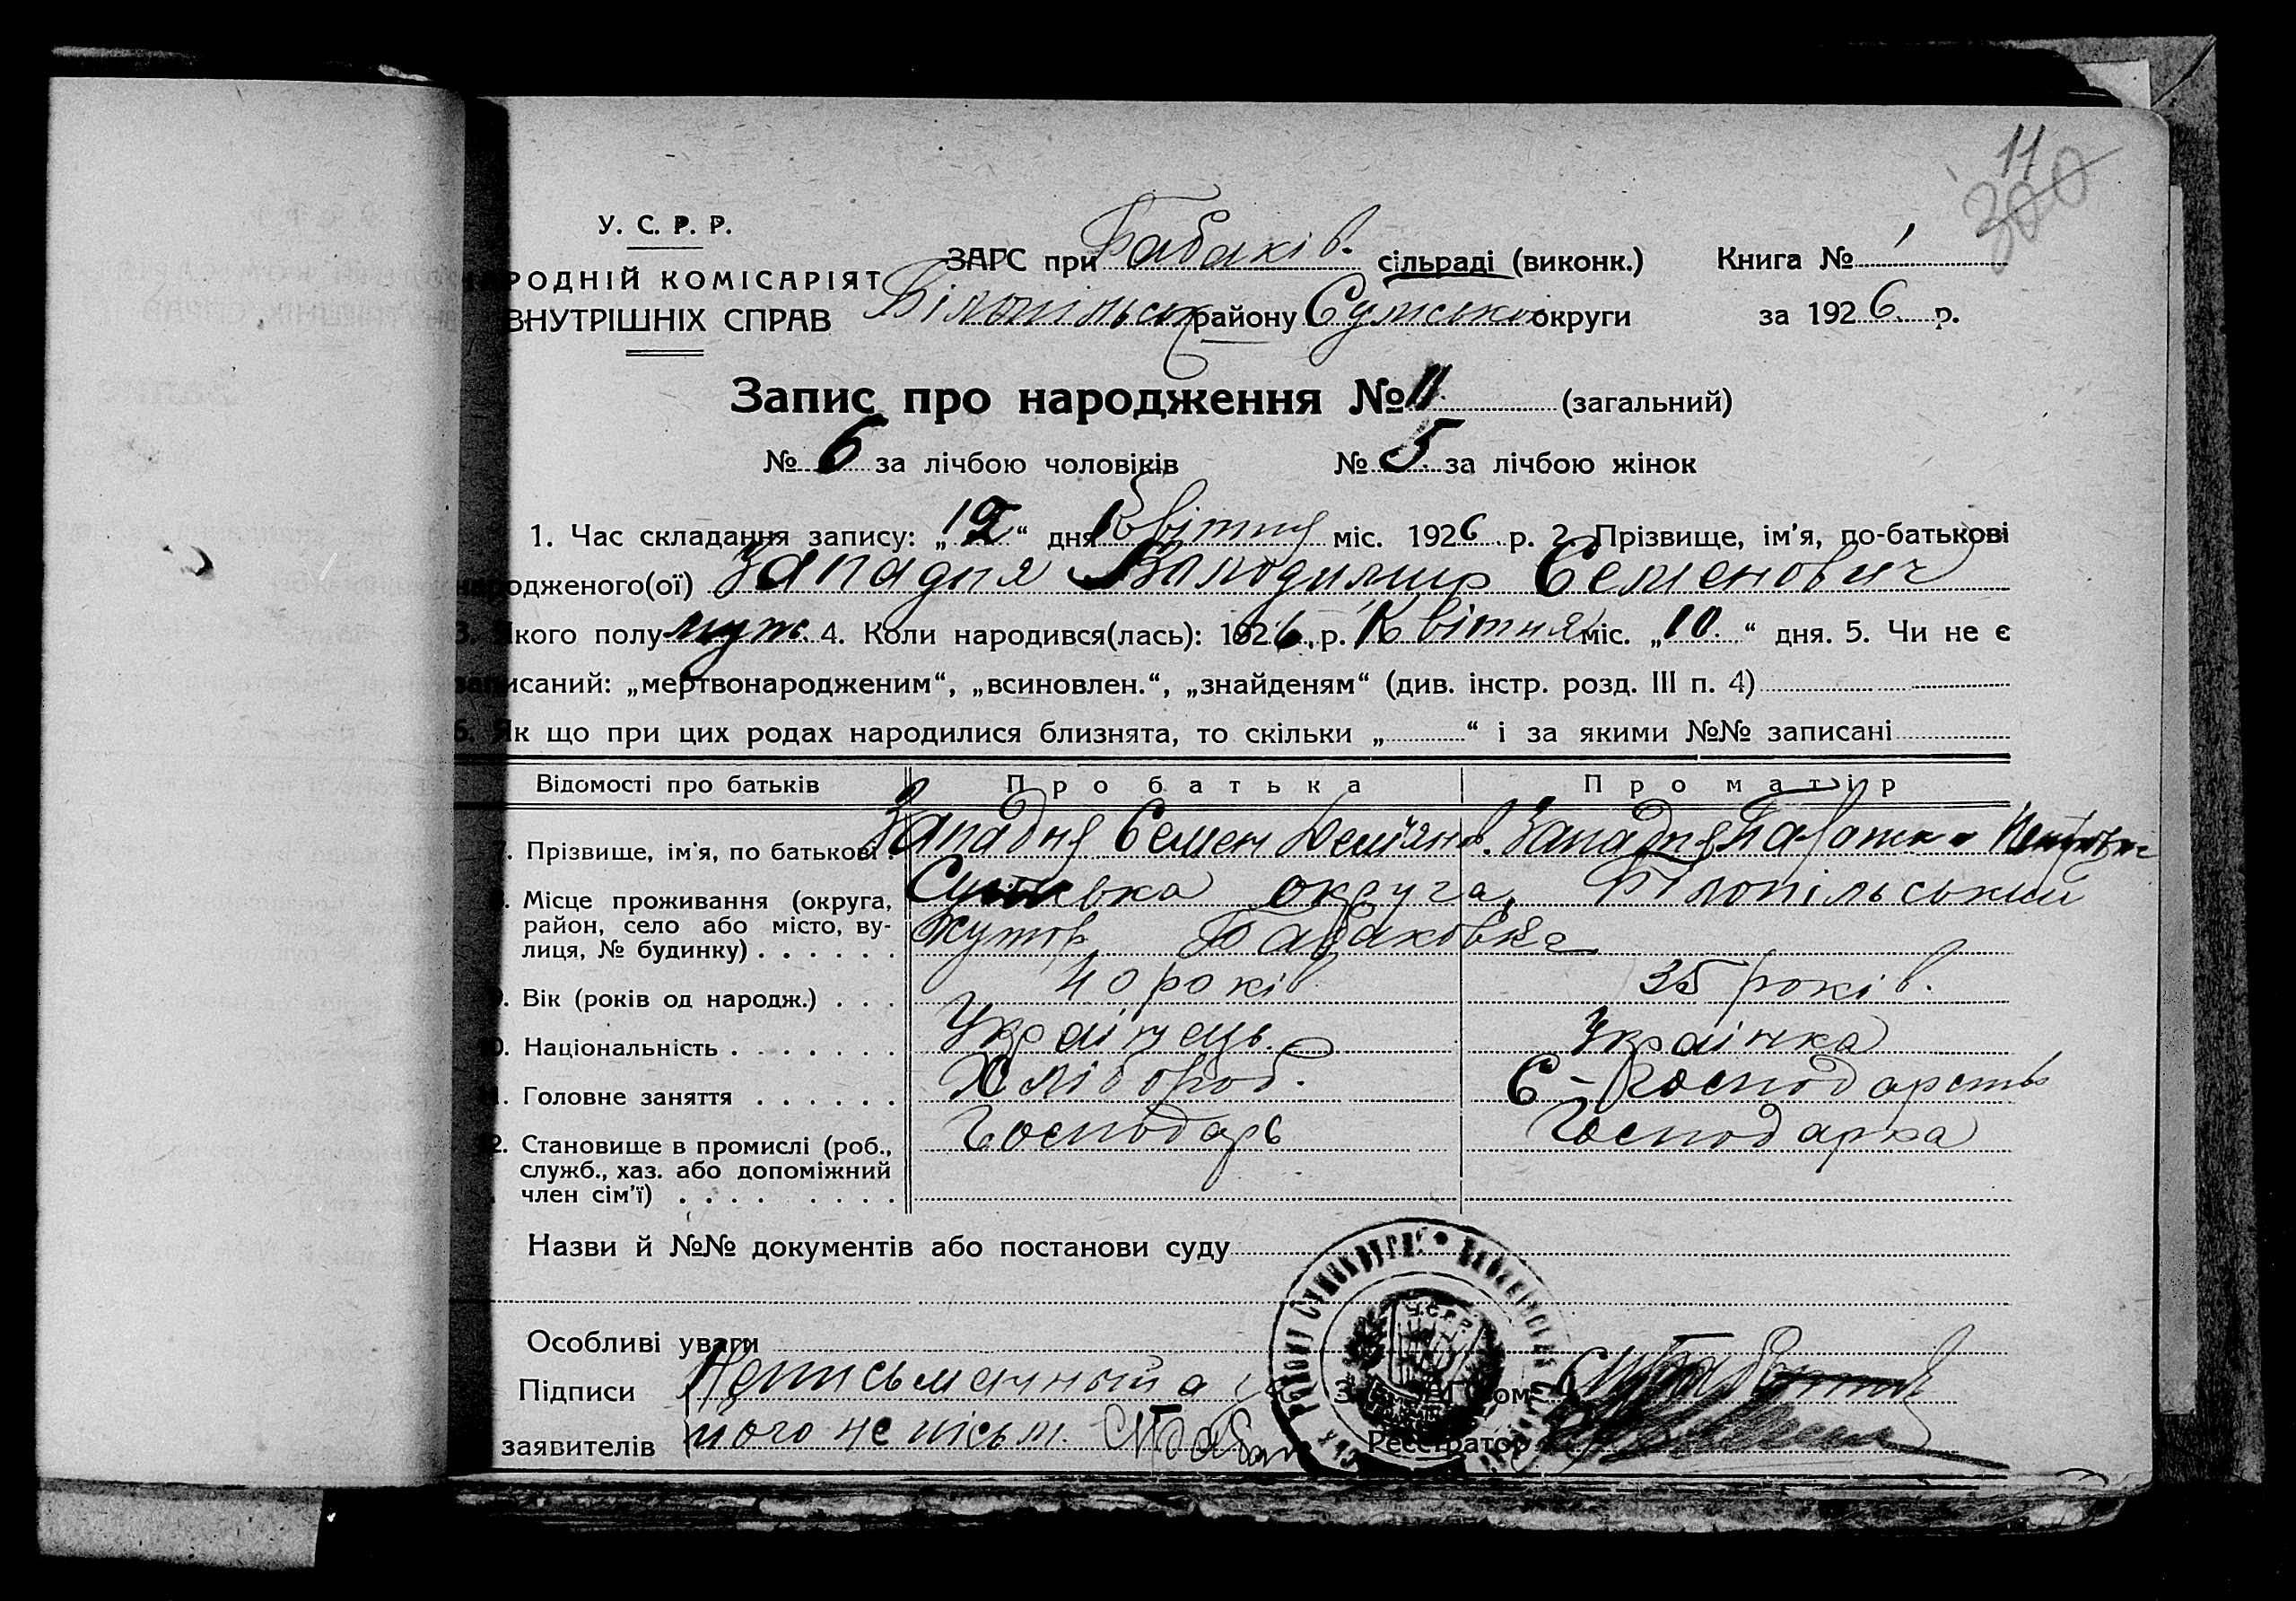 11
300
У. С. Р. Р.
НАРОДНІЙ КОМІСАРІЯТ
ВНУТРІШНІХ СПРАВ
ЗАГС при Бабаків. сільраді (виконк.) Книга № 1
Білопільськ району Сумської округи за 1926 р.
Запис про народження № 11 (загальний)
№ 6 за лічбою чоловіків № 5 за лічбою жінок
1. Час складання запису: „12“ дня Квітня міс. 1926 р. 2. Прізвище, ім'я, по-батькові
народженого(ої) Западня Володимир Семенович
3. Якого полу муж. 4. Коли народився(лась): 1926 р. Квітня міс. „10“ дня. 5. Чи не є
записаний: „мертвонародженим“, „всиновлен.“, „знайденям“ (див. інстр. розд. III п. 4)
6. Як що при цих родах народилися близнята, то скільки „ “ і за якими №№ записані
Відомості про батьків Про батька Про матір
7. Прізвище, ім'я, по батькові. Западня Семен Дем'янов. Западня
8. Місце проживання (округа, Сумська округа, Білопільський
район, село або місто, ву-
лиця, № будинку) . . . . . . Хутор Бабаковка
9. Вік (років од народж.) . . . 40 років 35 років.
10. Національність . . . . . . . Українець. Українка
11. Головне заняття . . . . . . Хлібороб. С-Господарство
12. Становище в промислі (роб., Господарь Господарка
служб., хаз. або допоміжний
член сім'ї) . . . . . . . . .
Назви й №№ документів або постанови суду
Особливі уваги
Підписи Неписьменный а за
заявителів його не пісьм.
Реєстратор